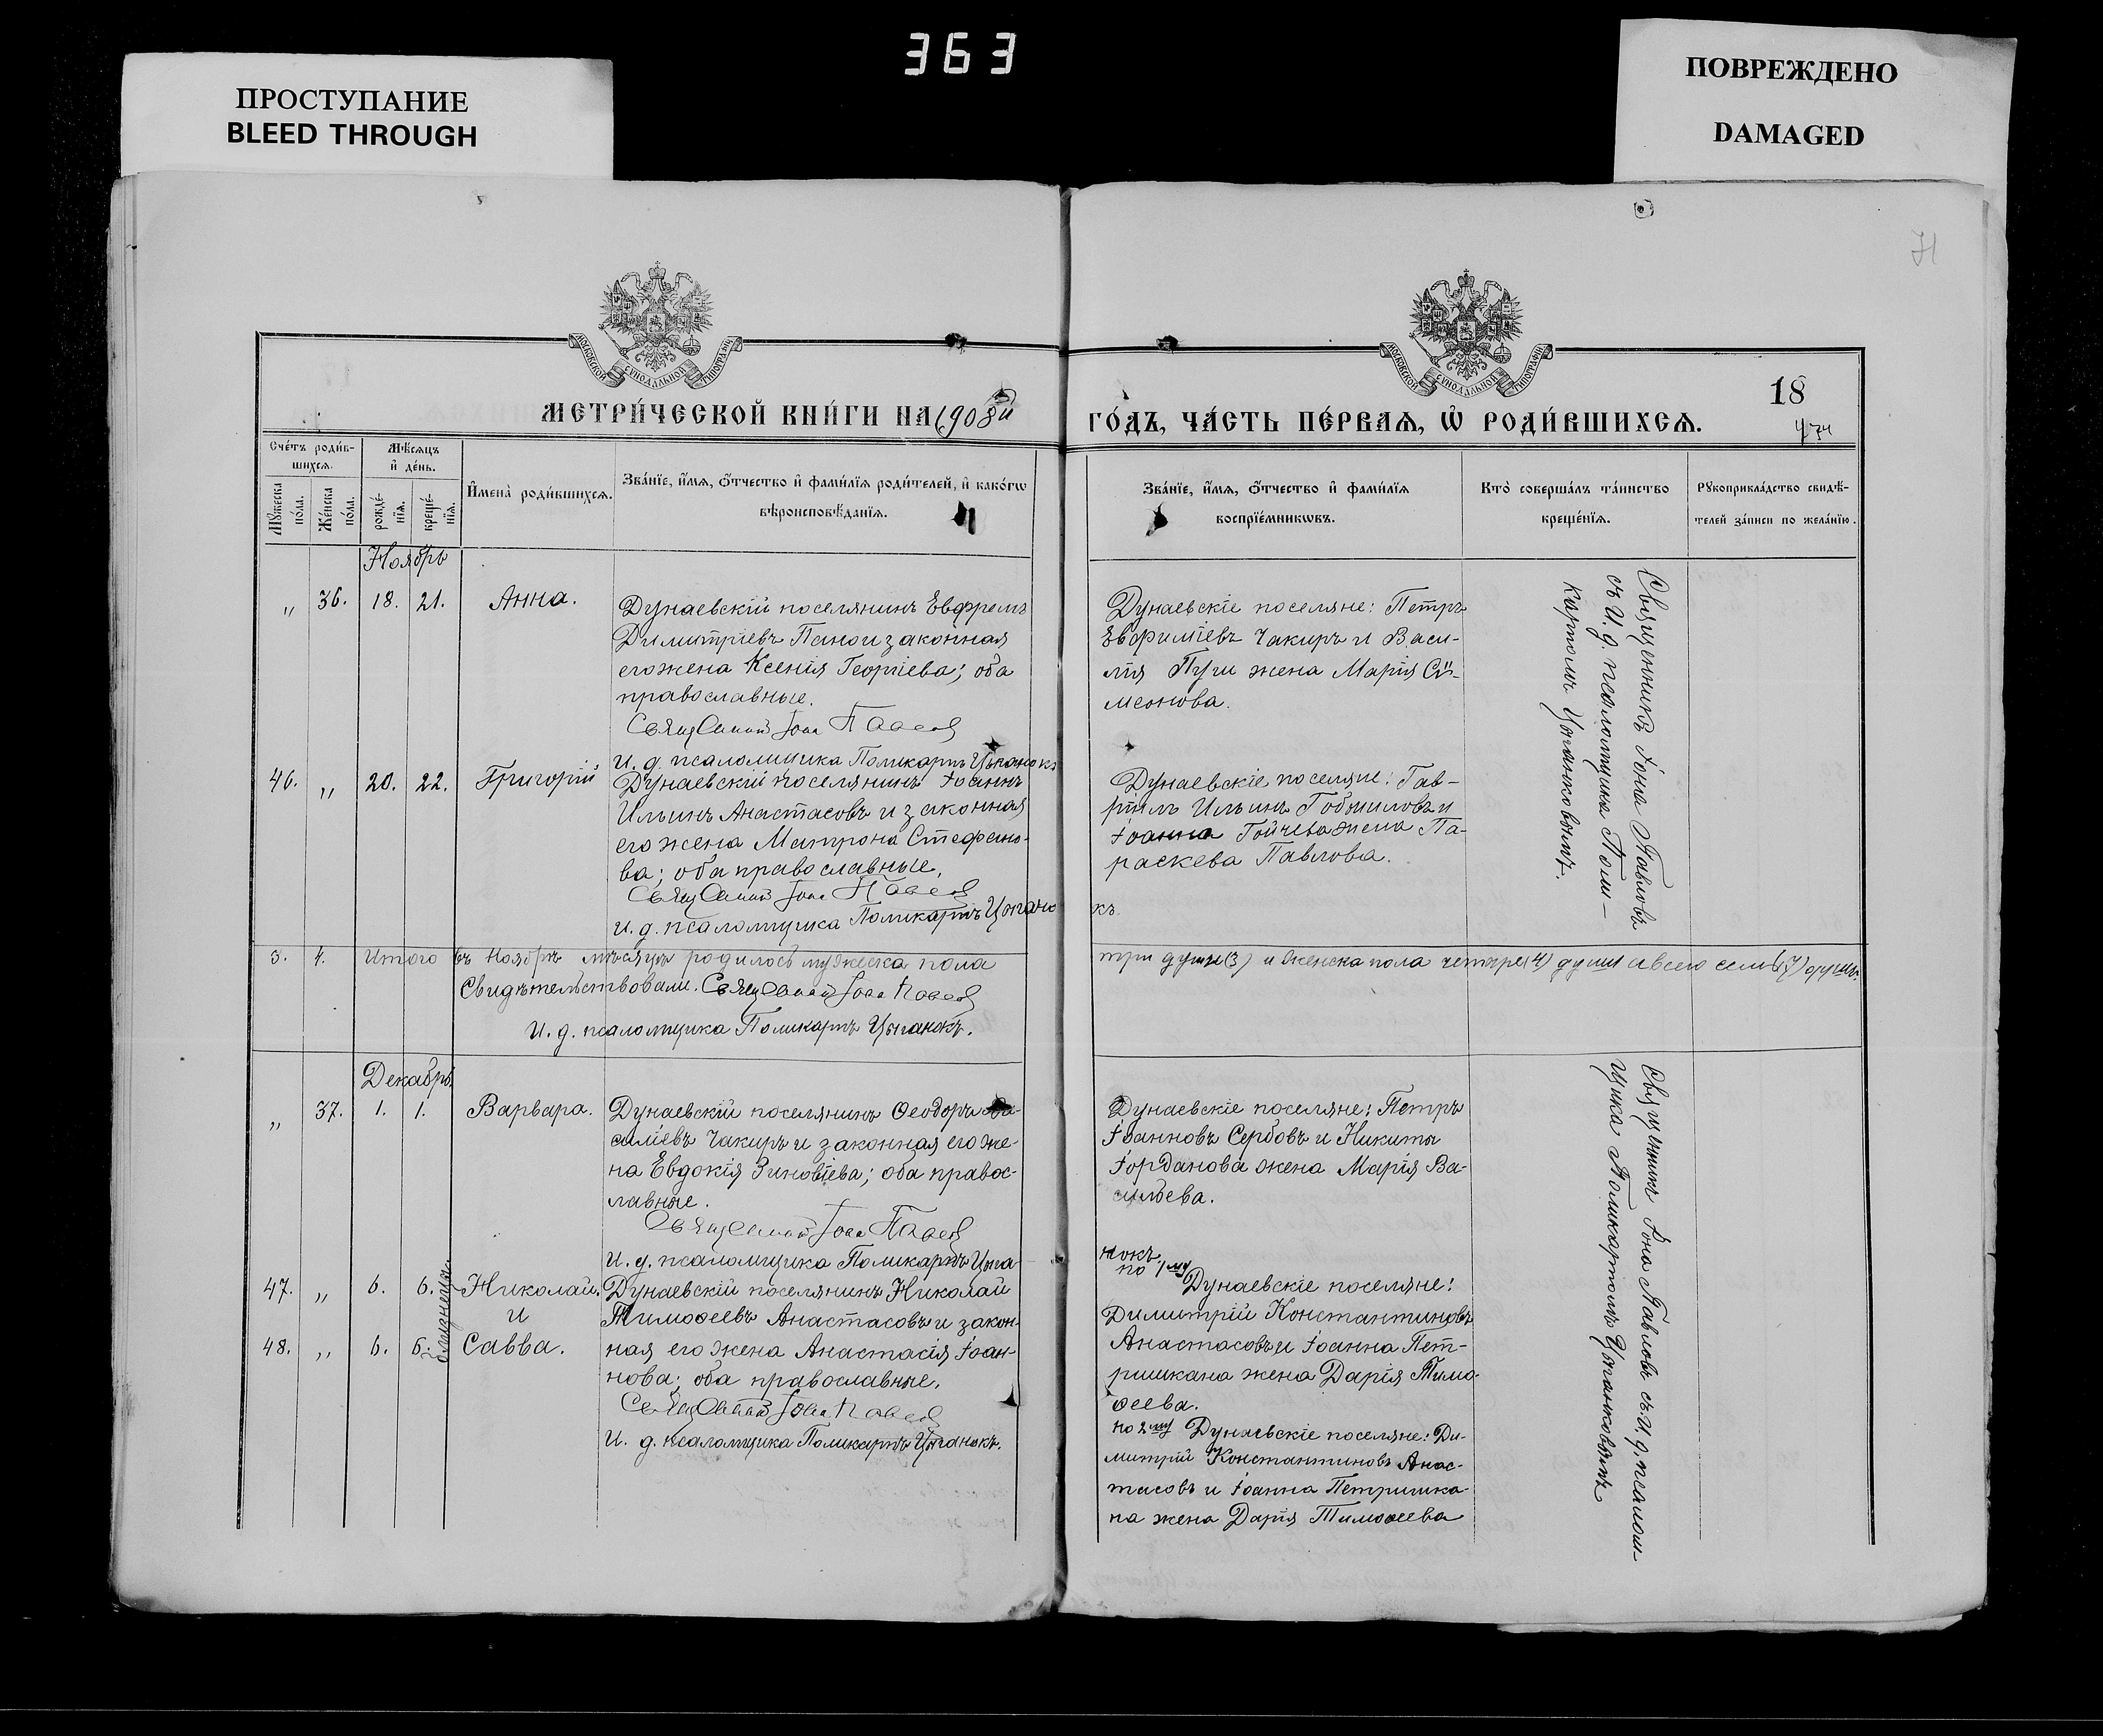 363
ПРОСТУПАНИЕ
BLEED THROUGH
ПОВРЕЖДЕНО
DAMAGED
71
МОСКОВСКОЙ СУНОДАЛЬНОЙ ТИПОГРАФІИ
МОСКОВСКОЙ СУНОДАЛЬНОЙ ТИПОГРАФІИ
18
МЕТРИ́ЧЕСКОЙ КНИ́ГИ НА 1908й
ГО́ДЪ, ЧА́СТЬ ПЕ́РВАЯ, Ѡ РОДИ́ВШИХСЯ.
434
Сче́тъ роди́вшихся.
Му́жеска по́ла.
Же́нска по́ла.
Мѣ́сяцъ и де́нь.
рожде́нїя.
креще́нїя.
Имена̀ роди́вшихся.
Зва́нїе, и́мя, о́тчество и фами́лїя роди́телей, и како́гѡ
вѣроисповѣ́данїя.
Зва́нїе, и́мя, о́тчество и фами́лїя
воспрїе́мникѡвъ.
Кто̀ соверша́лъ та́инство
креще́нїя.
Рукоприкла́дство свидѣ́-
телей за́писи по жела́нїю.
Ноябрь
„ 36. 18. 21. Анна.
Дунаевскій поселянинъ Евфремъ
Димитріевъ Пано и законная
его жена Ксенія Георгіева; оба
православные.
Священникъ Іона Павловъ
И. д. псаломщика Поликарпъ Цыганокъ
Дунаевскіе поселяне: Петръ
Евфиміевъ Чакиръ и Васи-
лія Пуги жена Марія Си-
меонова.
Священникъ Іона Павловъ
съ И. д. псаломщика Поли-
карпомъ Цыганковымъ.
46. „ 20. 22. Григорій
Дунаевскій поселянинъ Іоаннъ
Ильинъ Анастасовъ и законная
его жена Матрона Стефано-
ва; оба православные.
Священникъ Іона Павловъ
И. д. псаломщика Поликарпъ Цыгано
къ.
Дунаевскіе поселяне: Гав-
ріилъ Ильинъ и
Іоанна Гойчева жена Па-
раскева Павлова.
3. 4. Итого въ Ноябрѣ мѣсяцѣ родилось мужеска пола
три души (3) и женска пола четыре (4) души а всего семь (7) душъ.
Свидѣтельствовали. Священникъ Іона Павловъ
И. д. псаломщика Поликарпъ Цыганокъ.
Декабрь
„ 37. 1. 1. Варвара.
Дунаевскій поселянинъ Ѳеодоръ Ва-
силіевъ Чакиръ и законная его же-
на Евдокія Зиновіева; оба правос-
лавные.
Священникъ Іона Павловъ
И. д. псаломщика Поликарпъ Цыга-
нокъ.
Дунаевскіе поселяне: Петръ
Іоанновъ Сербовъ и Никиты
Іорданова жена Марія Ва-
сильева.
Священникъ Іона Павловъ съ И. д. псалом-
щика Поликарпомъ Цыганковымъ
47. „ 6. 6. Николай.
и
48. „ 6. 6. Савва.
близнецы
Дунаевскій поселянинъ Николай
Тимоѳеевъ Анастасовъ и закон-
ная его жена Анастасія Іоан-
нова; оба православные.
Священникъ Іона Павловъ
И. д. псаломщика Поликарпъ Цыганокъ.
по 1му Дунаевскіе поселяне:
Димитрій Константиновъ
Анастасовъ и Іоанна Пет-
ришкана жена Дарія Тимо-
ѳеева.
по 2му Дунаевскіе поселяне: Ди-
митрій Константиновъ Анас-
тасовъ и Іоанна Петришка-
на жена Дарія Тимоѳеева